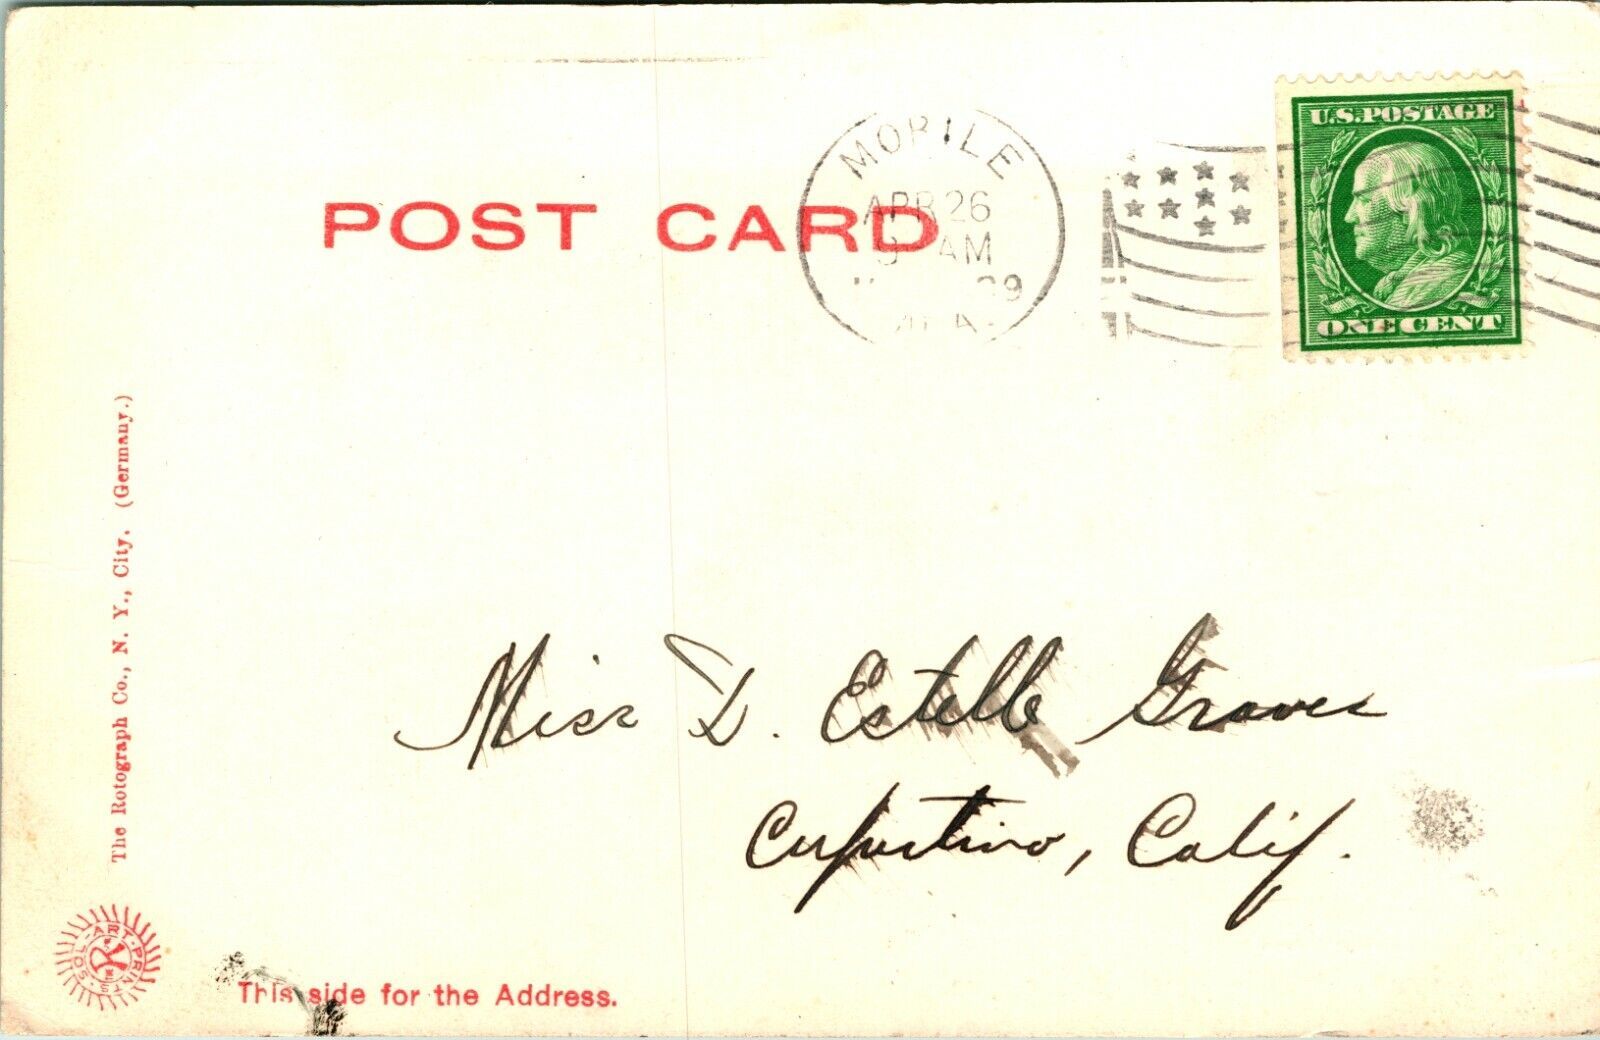 POST CARD
MOBILE
APR 26
AM
ALA.
U.S.POSTAGE
ONE CENT
The Rotograph Co., N. Y., City. (Germany.)
Miss D. Estelle Graves
Cupertino, Calif.
SOL-ART-PRINTS
This side for the Address.